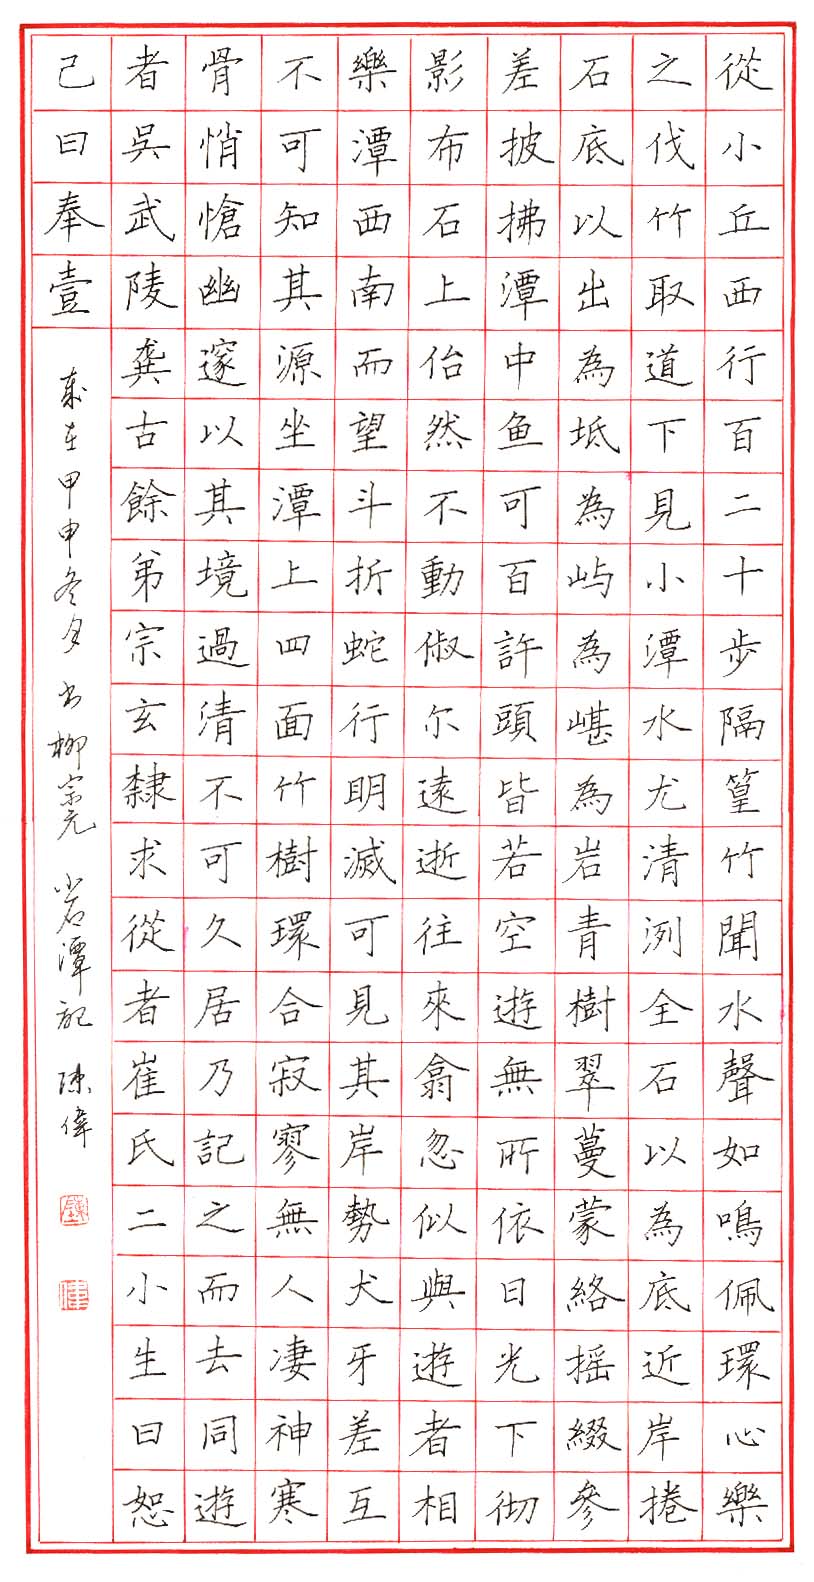 從小丘西行百二十步隔篁竹聞水聲如鳴佩環心樂
之伐竹取道下見小潭水尤清洌全石以為底近岸捲
石底以出為坻為屿為嵁為岩青樹翠蔓蒙絡摇綴參
差披拂潭中鱼可百許頭皆若空遊無所依日光下彻
影布石上佁然不動俶尔遠逝往來翕忽似與遊者相
樂潭西南而望斗折蛇行明滅可見其岸勢犬牙差互
不可知其源坐潭上四面竹樹環合寂寥無人凄神寒
骨悄愴幽邃以其境過清不可久居乃記之而去同遊
者吳武陵龚古餘弟宗玄隸求從者崔氏二小生曰恕
己曰奉壹
歲在甲申冬月书柳宗元小石潭記陳偉